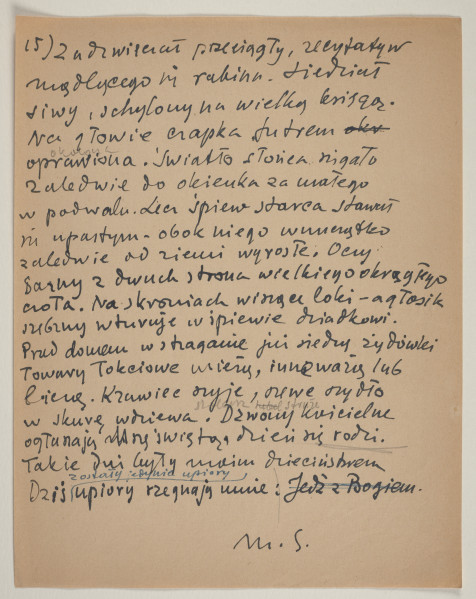 15) Za drzwiami przeciągły, recytatyw
modlącego się rabina. Siedział
siwy, schylony na wielką księgą.
Na głowie czapka futrem okr
okolona
oprawiona. Światło słońca sięgało
zaledwie do okienka za małego
w podwalu. Lecz śpiew starca stawał
się upartym - obok niego wnuczątko
zaledwie od ziemi wyrosłe. Oczy
sarny z dwuch strona wielkiego okrągłego
czoła. Na skroniach wiszące loki - a głosik
srebrny wturuje w śpiewie dziadkowi.
Przed domem w straganie już siedzą żydówki
Towary łokciowe mierzą, inne ważą lub
liczą. Krawiec szyje, szewc szydło
stróże
w skórę wdziewa. Dzwony kościelne
ogłaszają Mszę świętą, dzień się rodzi.
Takie dni były moim dzieciństwem
zostały upiory
Dziś upiory rzegnają mnie: Jedź z Bogiem.
M. S.